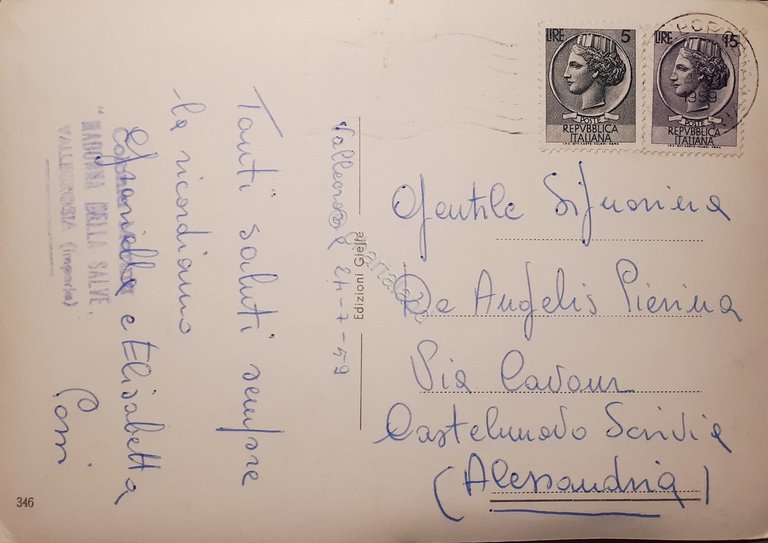 Vallecrosia 24-7-59
Tanti saluti sempre
la ricordiamo
Graziella e Elisabetta
"MADONNA DELLA SALVE"
VALLECROSIA (Imperia)
346
Edizioni Gielle
LIRE 5
POSTE
REPVBBLICA
ITALIANA
LIRE 15
POSTE
REPVBBLICA
ITALIANA
1959
Gentile Signorina
De Angelis Pierina
Via Cavour
Castelnuovo Scrivia
(Alessandria)